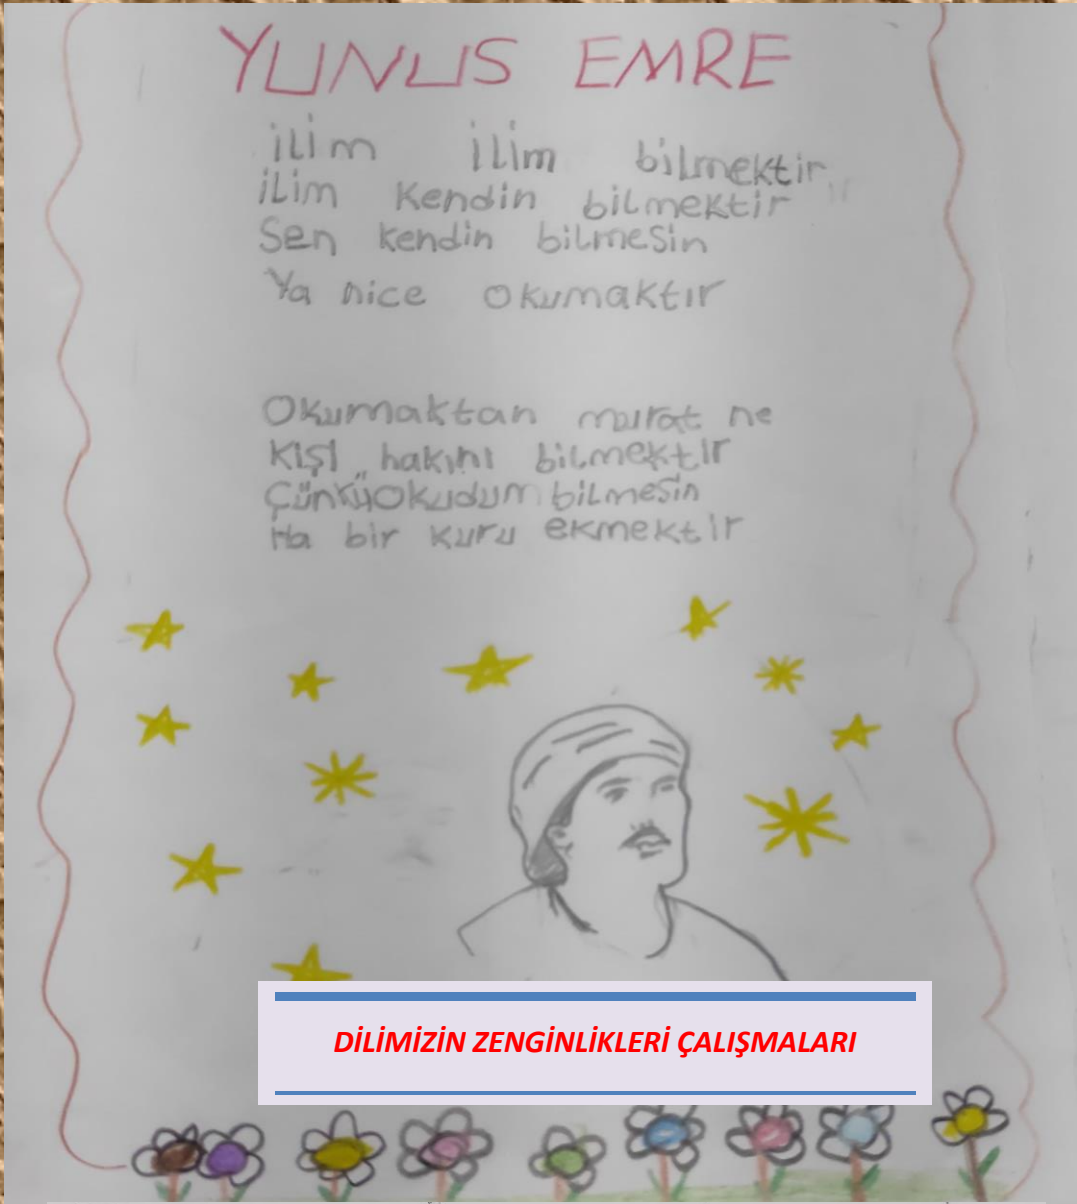 YUNUS EMRE
ilim ilim bilmektir
ilim kendin bilmektir
Sen kendin bilmesin
Ya nice okumaktır
Okumaktan murat ne
Kişi hakını bilmektir
Çünkü okudum bilmesin
Ha bir kuru ekmektir
DİLİMİZİN ZENGİNLİKLERİ ÇALIŞMALARI